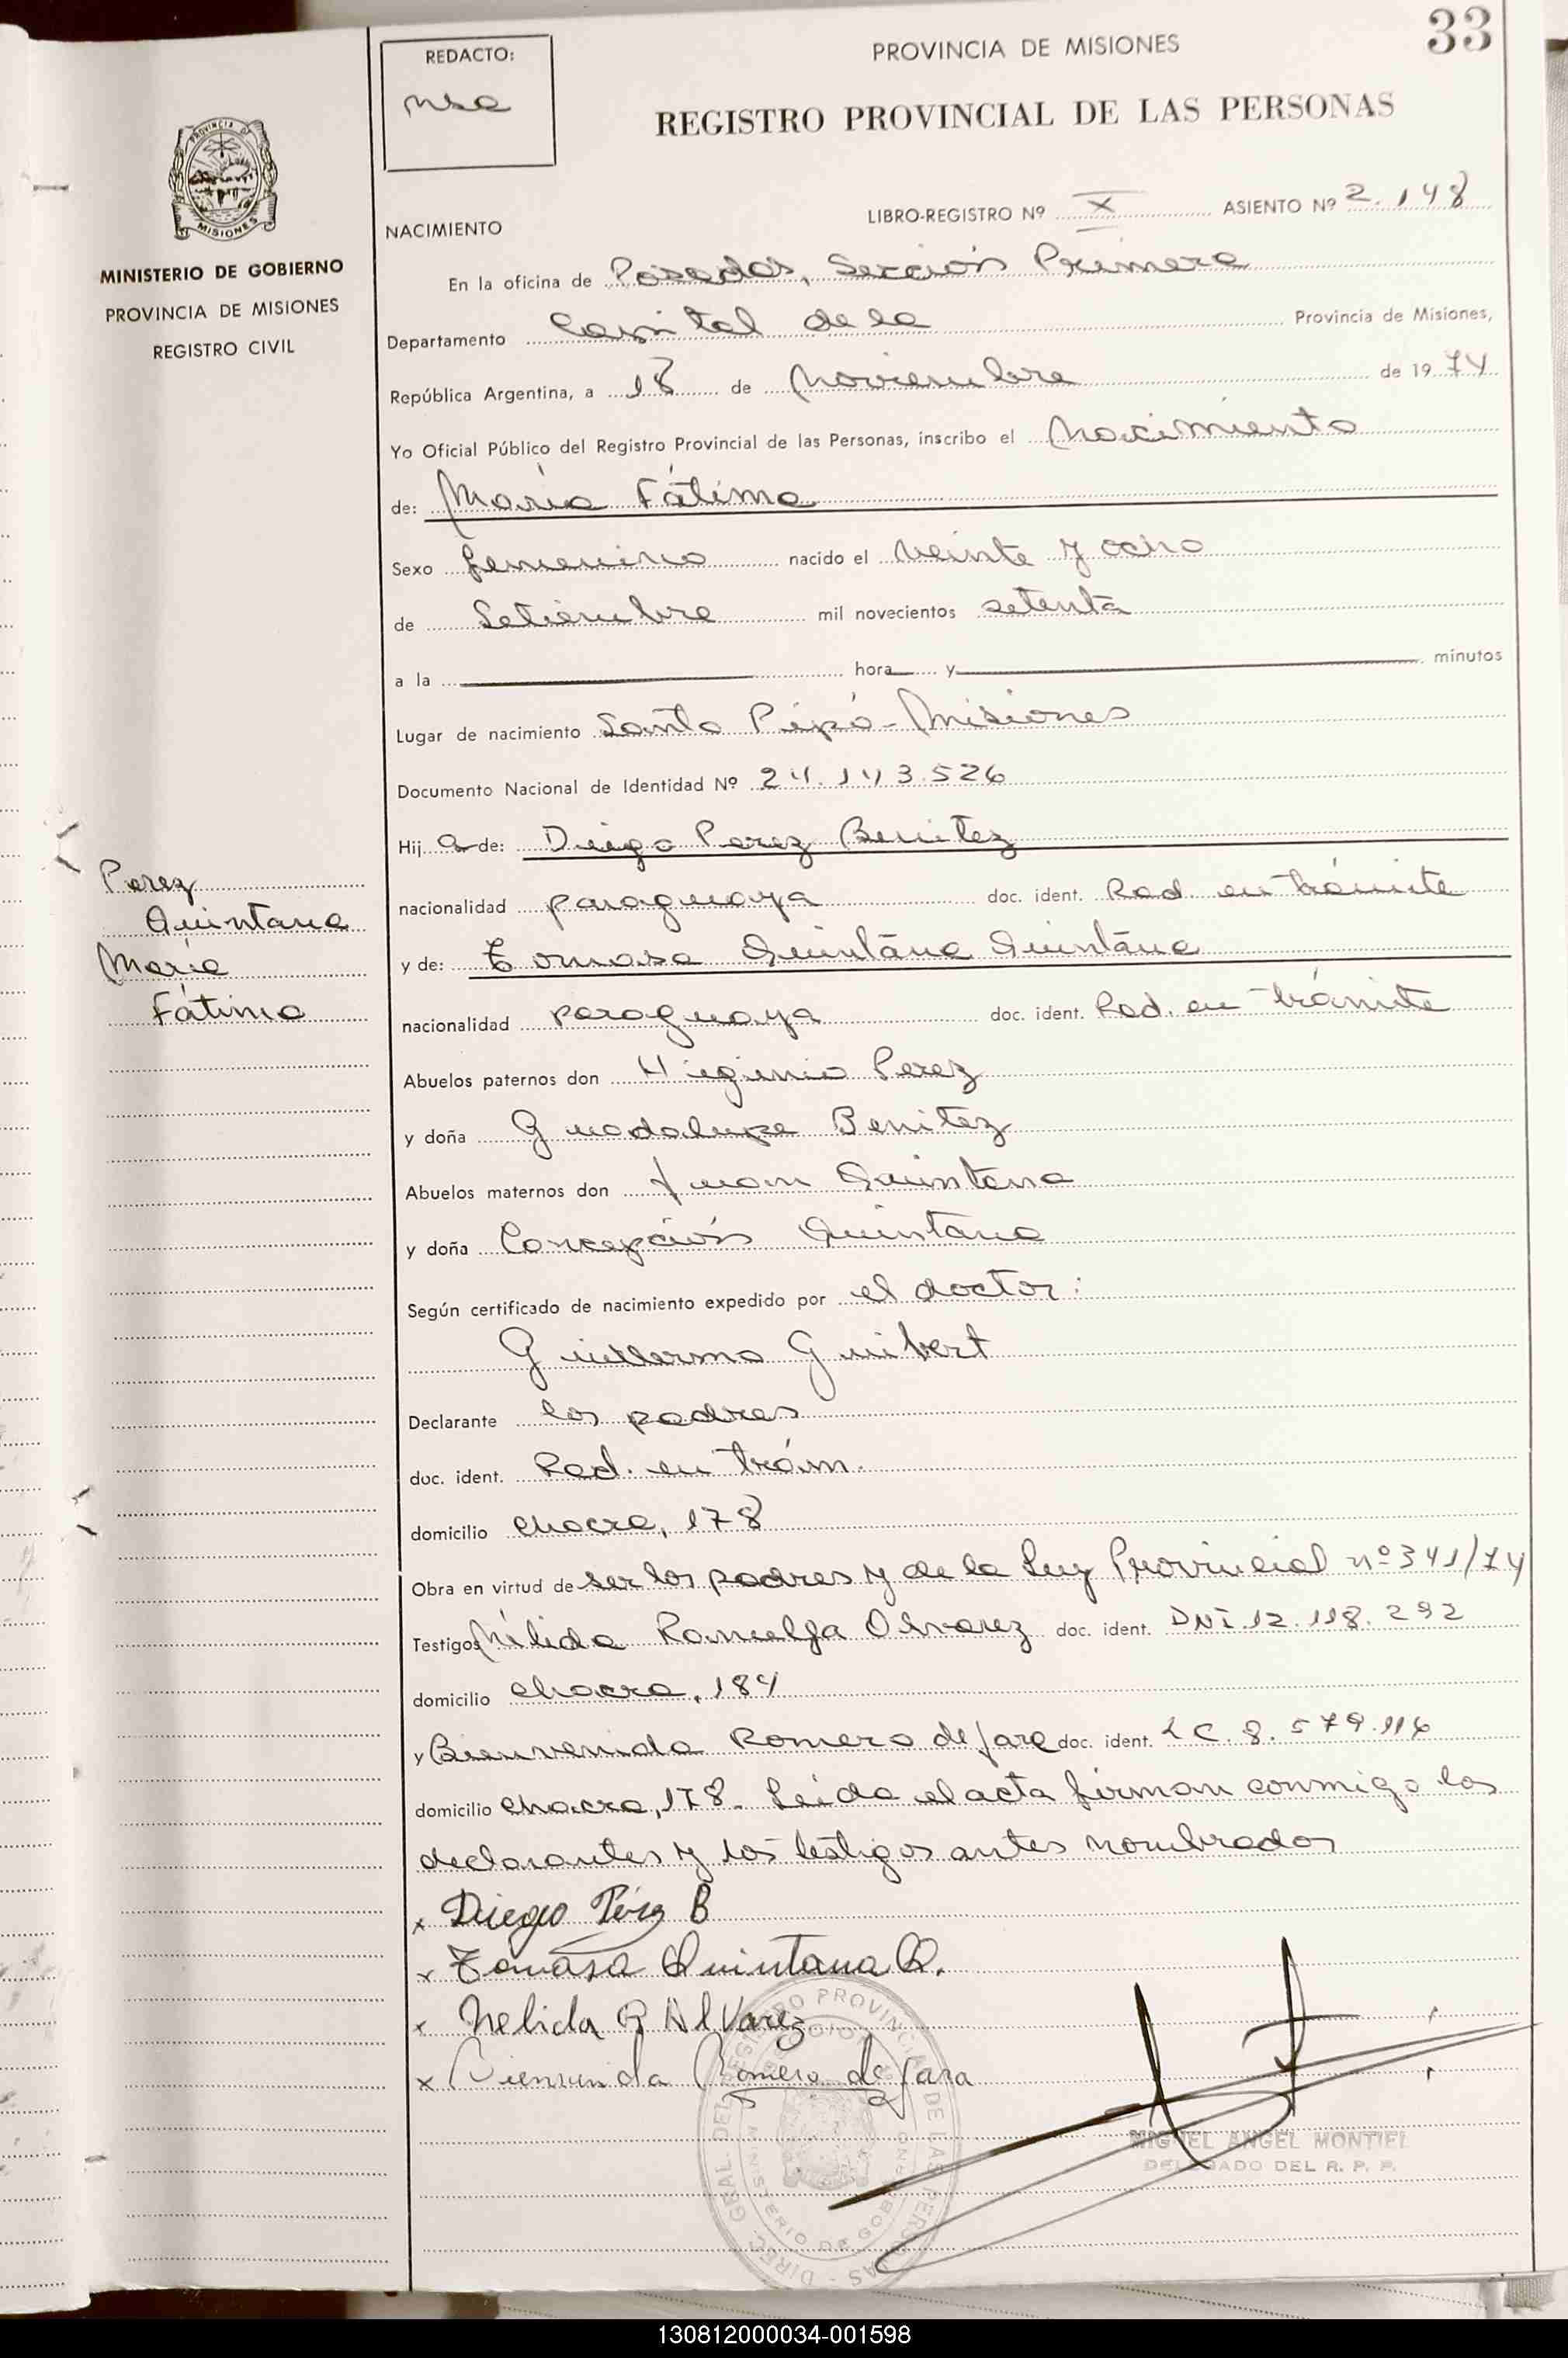 33
REDACTO:
PROVINCIA DE MISIONES
REGISTRO PROVINCIAL DE LAS PERSONAS
PROVINCIA DE
MISIONES
MINISTERIO DE GOBIERNO
PROVINCIA DE MISIONES
REGISTRO CIVIL
LIBRO-REGISTRO Nº X ASIENTO Nº 2.148
NACIMIENTO
En la oficina de Posadas, Sección Primera
Departamento Capital de la Provincia de Misiones,
República Argentina, a 18 de Noviembre de 1974
Yo Oficial Público del Registro Provincial de las Personas, inscribo el Nacimiento
de: María Fátima
Sexo femenino nacido el veinte y ocho
de Setiembre mil novecientos setenta
a la hora y minutos
Lugar de nacimiento Santo Pipó - Misiones
Documento Nacional de Identidad Nº 24.143.526
Hij a de: Diego Perez Benitez
nacionalidad paraguaya doc. ident. Rad. en trámite
y de: Tomasa Quintana Quintana
nacionalidad paraguaya doc. ident. Rad. en trámite
Perez
Quintana
María
Fátima
Abuelos paternos don Higinio Perez
y doña Guadalupe Benitez
Abuelos maternos don Juan Quintana
y doña Concepción Quintana
Según certificado de nacimiento expedido por el doctor:
Guillermo Guibert
Declarante los padres
doc. ident. Rad. en trám.
domicilio chacra, 178
Obra en virtud de ser los padres y de la Ley Provincial nº 341/74
Testigos Nélida Ramulfa Alvarez doc. ident. DNI 12.118.292
domicilio chacra, 184
y Bienvenida Romero de Jara doc. ident. LC 8.579.116
domicilio chacra, 178. Leída el acta firman conmigo los
declarantes y los testigos antes nombrados
x Diego Pérez B
x Tomasa Quintana Q.
x Nelida R Alvarez
x Bienvenida Romero de Jara
DIREC. GRAL. DEL REGISTRO PROVINCIAL DE LAS PERSONAS
MINISTERIO DE GOBIERNO
MIGUEL ANGEL MONTIEL
DELEGADO DEL R. P. P.
130812000034-001598